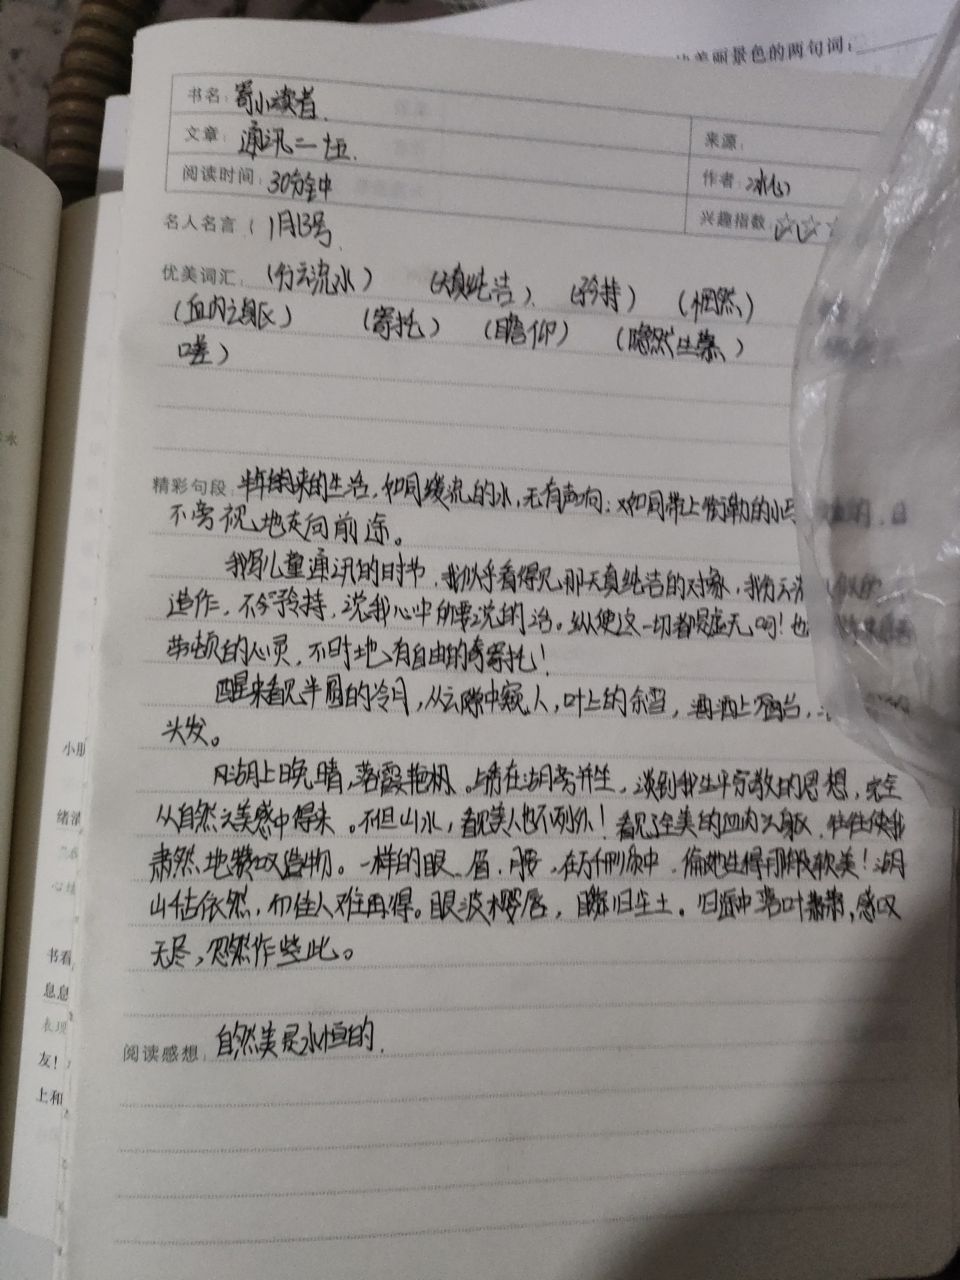 美丽景色的两句词：
书名：寄小读者.
文章：通讯二十五.
来源：
阅读时间：30分钟
作者：冰心
名人名言（1月13号.
兴趣指数：☆☆☆
优美词汇：（行云流水） （天真纯洁）. （矜持） （惘然）
（血肉之躯） （寄托） （瞻仰） （隐然生慕）
嗟）
精彩句段：半年来的生活，如同缓流的水，无有声响；又如同带上衔勒的小
不旁视地走向前途。
我写儿童通讯的时节，我似乎看得见那天真纯洁的对象，我行云流 似的
造作，不矜持，说我心中所要说的话。纵使这一切都是虚无呵！也
劳顿的心灵，不时地有自由的寄托！
醒来看见半圆的冷月，从云隙中窥人，叶上的余雪，洒洒上
头发。
湖上晚晴，落霞艳极。 在湖旁并坐，谈到我生平宗教的思想，完全
从自然之美感中得来。不但山水，看见美人也不列外！看见了全美的血肉之躯，往往使我
肃然地赞叹造物。一样的眼、眉、腰，在万千形质中，偏她生得那般软美！湖
山千古依然，而佳人难再得。眼波樱唇， 归尘土。归途中落叶萧萧，感叹
无尽，忽然作些此。
阅读感想：自然美是永恒的.
小朋
绪清
心绪
书看
息息
表现
友！
上和
水